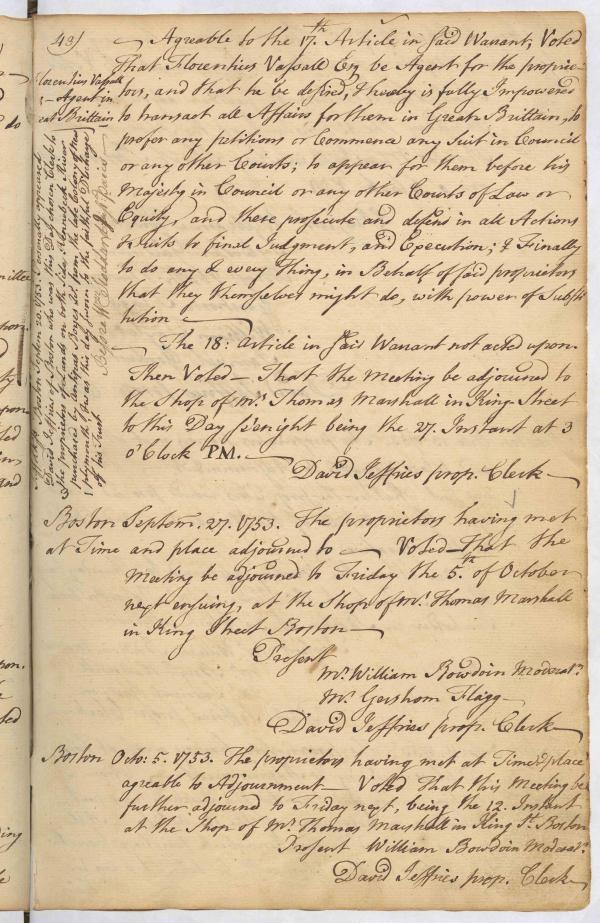 43)
Agreable to the 17th. Article in said Warrant, Voted
That Florentius Vassall Esq be Agent for the proprie-
tors, and that he be desired, & hereby is fully Impowered
to transact all Affairs for them in Great Brittain, to
prefer any petitions or Commence any Suit in Council
or any other Courts; to appear for them before his
Majesty in Council or any other Courts of Law or
Equity, and there prosecute and defend in all Actions
& suits to final Judgment, and Execution; & Finally
to do any & every Thing, in Behalf of said proprietors
that they themselves might do, with power of Substi
tution
Florentius Vassall
Agent in
Great Brittain
Suffolk ss. Boston Septem 20. 1753. Personally appeared
David Jeffries of Boston who was this Day chosen Clerk to
the proprietors of Lands on both Sides Kennebeck River
purchased by Antipas Boyes &c from the late Colony of New
plymouth & was this day sworn to the faithful Discharge
of his Trust
Before
The 18: Article in said Warrant not acted upon.
Then Voted— That the Meeting be adjourned to
the Shop of Mr. Thomas Marshall in King Street
to this Day sevenight being the 27. Instant at 3
o'Clock PM.
David Jeffries prop. Clerk
Boston Septem. 27. 1753. The proprietors having met
at Time and place adjourned to — Voted—That the
Meeting be adjourned to Friday the 5th. of October
next ensuing, at the Shop of Mr. Thomas Marshall
in King Street Boston
Present
Mr. William Bowdoin Moderatr.
Mr. Gershom Flagg
David Jeffries prop. Clerk
Boston Octo: 5. 1753. The proprietors having met at Time & place
agreable to Adjournment— Voted That this Meeting be
further adjournd to Friday next, being the 12. Instant
at the Shop of Mr. Thomas Marshall in King St. Boston
Present William Bowdoin Moderatr.
David Jeffries prop. Clerk